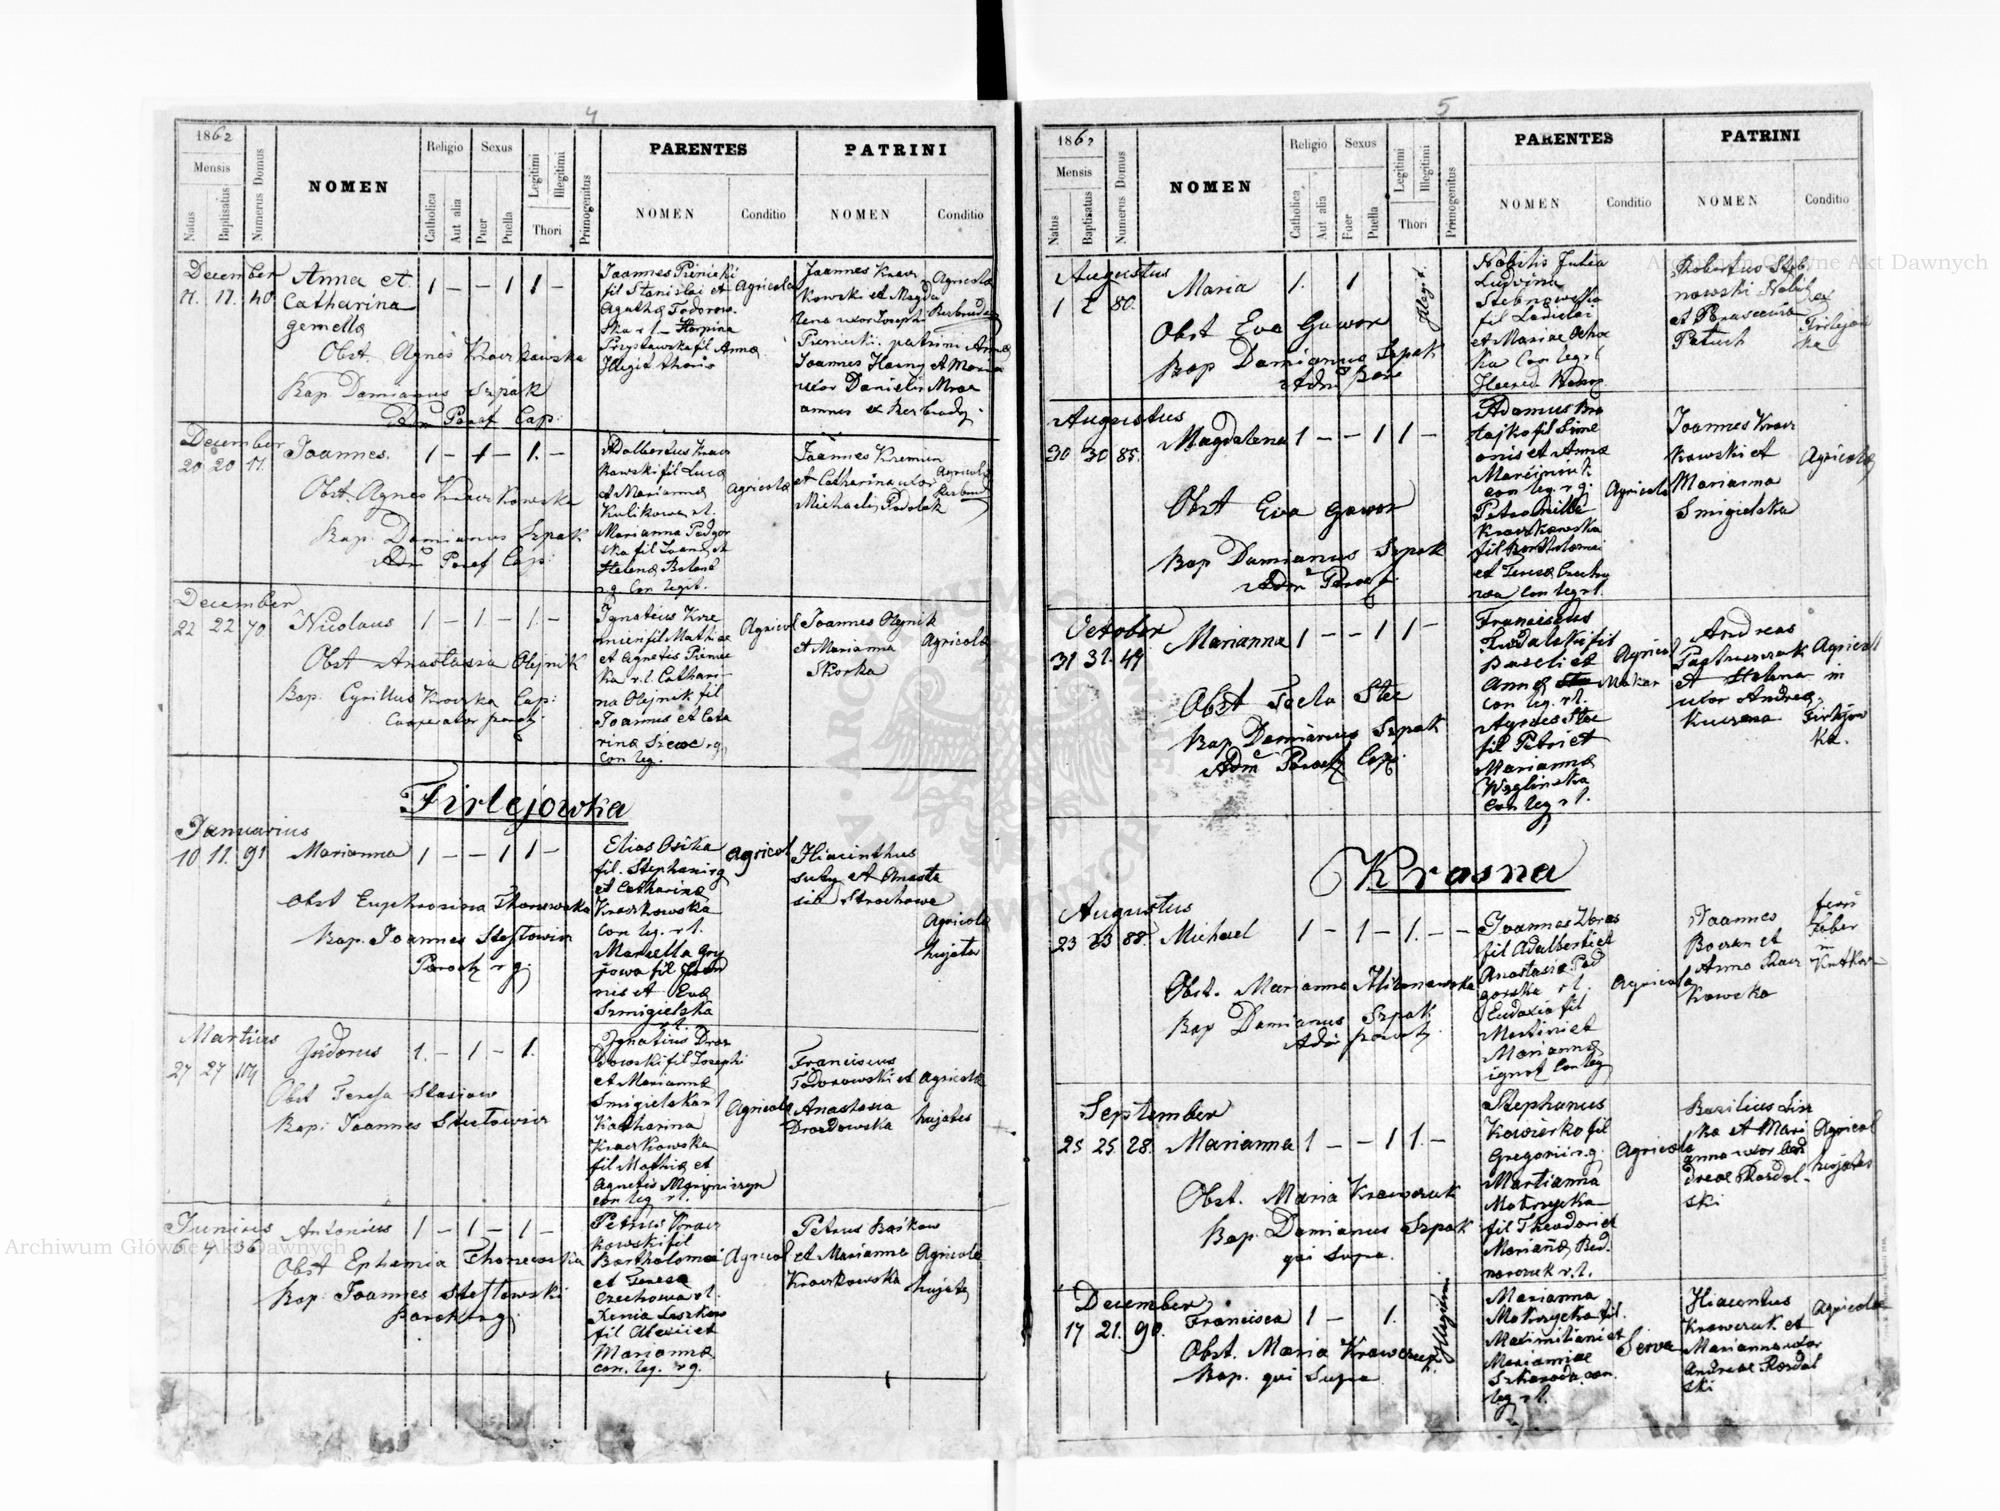 4
1862
Mensis
Natus
Baptisatus
Numerus Domus
NOMEN
Religio
Catholica
Aut alia
Sexus
Puer
Puella
Legitimi
Illegitimi
Thori
Primogenitus
PARENTES
NOMEN
Conditio
PATRINI
NOMEN
Conditio
December
17. 17. 40.
Anna et
Catharina
gemellæ
1 - - 1 1 -
Obst Agnes Kraczkowska
Bap. Damianus Szpak
Adm Paroch Cap:
Joannes Pieniski
fil Stanislai et
Agathæ Todorow
ska r.l. - Horpina
Przystawska fil Annæ
Illegit thoris
Agricola
Joannes Kracz
kowski et Magda
lena uxor Joseph
Pieniuki. patrini Annæ
Joannes Harny et Maria
uxor Danielis Mroc
Agricolæ
December
20 20 17.
Joannes.
1 - 1 - 1. -
Obst. Agnes Kraczkowska
Bap. Damianus Szpak
Adm Paroch Cap:
Adalbertus Kracz
kowski fil Lucæ
et Mariannæ
Kulikowa r.l.
Marianna Podgor
ska fil Joannis et
Helenæ
r.g. Con legit.
Agricolæ
Joannes Kremin
et Catharina uxor
Michaelis Podolak
Agricolæ
December
22 22 70
Nicolaus
1 - 1 - 1. -
Obst Anastasia Olejnik
Bap. Cyrillus Krowka Cap:
Cooperator paroch.
Ignatius Krze
mien fil Mathiæ
et Agnetis Pieniu
ka r.l. Cathari
na Olejnik fil
Joannis et Cata
rina Szewc r.g.
Con leg.
Agricol
Joannes Olejnik
et Marianna
Skorka
Agricolæ
Firlejowka
Januarius
10 11. 91
Marianna
1 - - 1 1 -
Obst Euphrosina Thorzewska
Bap. Joannes Steftowicz
Paroch r.g.
Elias Osika
fil. Stephani r.g.
et Catharinæ
Kraczkowska
Con leg. r.l.
Marcella Gry
jowa fil Joan
nis et Evæ
Szmigielska
r.l.
Agricol
Hiacinthus
et Anasta
sia Strochowa
Agricolæ
hujates
Martius
27 27 104
Isidorus
1. - 1 - 1.
Obst Teresa Stasiow
Bap: Joannes Steftowicz
Ignatius Droz
dowski fil Josephi
et Mariannæ
Smigielska r.l.
Katharina
Kraczkowska
fil Mathiæ et
Agnetis
con leg. r.l.
Agricola
Franciscus
Todorowski et
Anastasia
Drozdowska
Agricolæ
hujates
Junius
6 7 36
Antonius
1 - 1 - 1 -
Obst Ephemia Thorzewska
Bap: Joannes Steftowski
Paroch r.g.
Petrus Kracz
kowski fil
Bartholomei
et Teresa
Czechowa r.l.
Xenia Laszkow
fil Alexii et
Mariannæ
con. leg. r.g.
Agricol
Petrus Baikow
et Marianna
Kraczkowska
Agricolæ
hujates
5
1862
Mensis
Natus
Baptisatus
Numerus Domus
NOMEN
Religio
Catholica
Aut alia
Sexus
Puer
Puella
Legitimi
Illegitimi
Thori
Primogenitus
PARENTES
NOMEN
Conditio
PATRINI
NOMEN
Conditio
Augustus
1 2 80.
Maria
1. 1
Illegit.
Obst Eva Gawor
Bap Damianus Szpak
Adm Paro
Nobilis Julia
Ludvina
Stebnowska
fil Ladislai
et Mariæ Ocho
ka Con leg r.l.
Robertus Steb
nowski Nobilis
et Parascevia
Petuch
ex
Firlejow
ka
Augustus
30 30 85.
Magdalena
1 - - 1 1 -
Obst Eva Gawor
Bap Damianus Szpak
Adm Paroch
Adamus Bra
tajko fil Sime
onis et Annæ
Marcinow
con leg. r.g.
Petronilla
Kraczkowska
fil Bartholomei
et Teresæ Czecho
wa Con leg r.l.
Agricola
Joannes Kracz
kowski et
Marianna
Smigielska
Agricolæ
October
31 31. 49
Marianna
1 - - 1 1 -
Obst Tecla Stec
Bap Damianus Szpak
Adm Paroch Cap:
Franciscus
fil
Pauli et
Annæ Makar
con leg. r.l.
Agnes Stec
fil Petri et
Mariannæ
Weglinska
Con leg r.l.
Agricol
Andreas
Pastuszczak
et Helena
uxor Andreæ
Kuczma
Agricol
in
Firlejow
ka.
Krasna
Augustus
23 23 88.
Michael
1 - 1 - 1. - -
Obst. Marianna Klimowska
Bap Damianus Szpak
Adm paroch
Joannes Zbroz
fil Adalberti et
Anastasiæ Pod
gorska r.l.
Eudoxia fil
Martini et
Mariannæ
ignot Con leg
Agricola
Joannes
Boczan et
Anna Kracz
kowska
ferri
faber
in
Kutkorz
September
25 25. 28.
Marianna
1 - - 1 1. -
Obst. Maria Krawczuk
Bap. Damianus Szpak
qui Supra.
Stephanus
Kawierko fil
Gregorii r.g.
Martianna
Mokrzycka
fil Theodori et
Mariannæ Bed
narczuk r.l.
Agricola
Basilius Lisz
ka et Mari
anna uxor An
dreae Rozdol-
ski
Agricol
hujates
December
17 21. 90.
Francisca
1 - 1.
Illegitimi
Obst. Maria Krawczuk.
Bap. qui Supra.
Marianna
Mokrzycka fil.
Maximiliani et
Mariannæ
Szkaroda con.
leg r.l.
Serva
Hiacentus
Krawczuk et
Marianna uxor
Andreae Rozdol
ski
Agricolæ
Archiwum Główne Akt Dawnych
Archiwum Główne Akt Dawnych